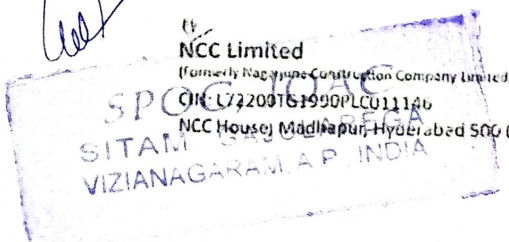 NCC Limited
(Formerly Nagarjuna Construction Company Limited
CIN: L72200TG1990PLC011146
NCC House, Madhapur, Hyderabad 500
SPOC, IQAC
SITAM GAJULAREGA
VIZIANAGARAM A.P. INDIA